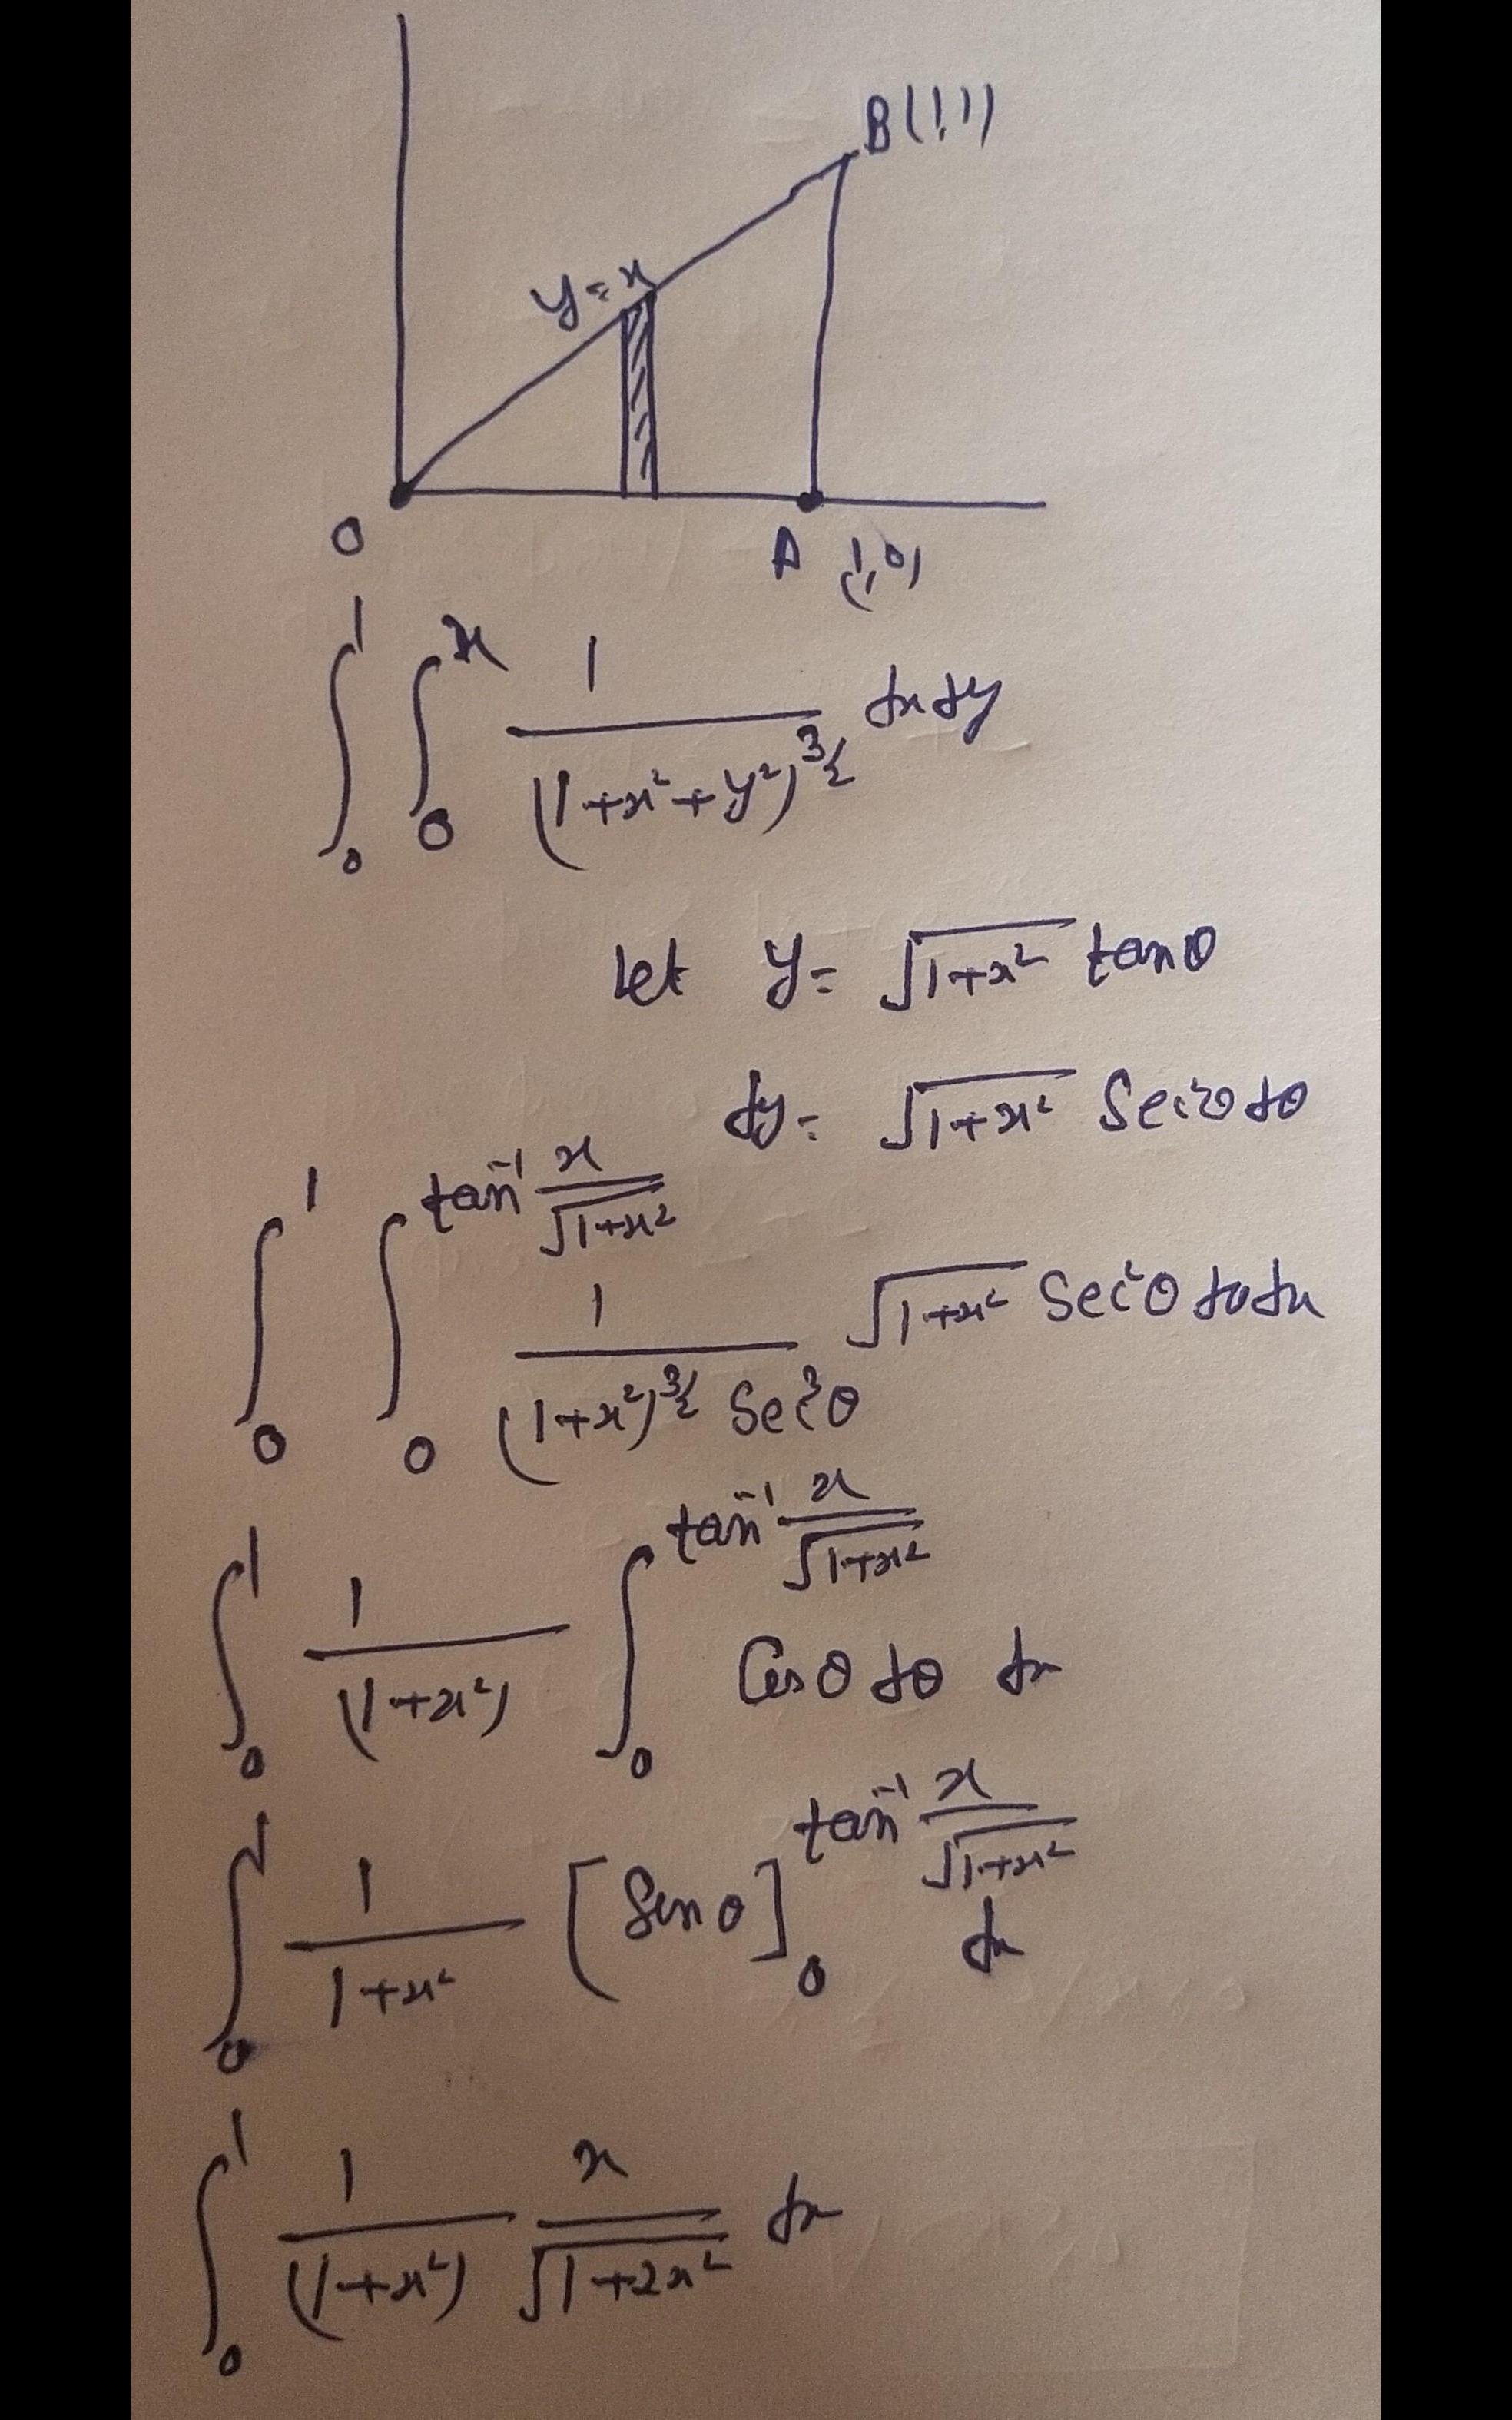 B(1,1)
y=x
O
A (1,0)
∫₀¹ ∫₀ˣ 1/(1+x²+y²)^(3/2) dx dy
let y = √(1+x²) tanθ
dy = √(1+x²) Sec²θ dθ
∫₀¹ ∫₀^(tan⁻¹ x/√(1+x²)) 1/((1+x²)^(3/2) Sec³θ) √(1+x²) Sec²θ dθ dx
∫₀¹ 1/(1+x²) ∫₀^(tan⁻¹ x/√(1+x²)) Cosθ dθ dx
∫₀¹ 1/(1+x²) [Sinθ]₀^(tan⁻¹ x/√(1+x²)) dx
∫₀¹ 1/(1+x²) x/√(1+2x²) dx